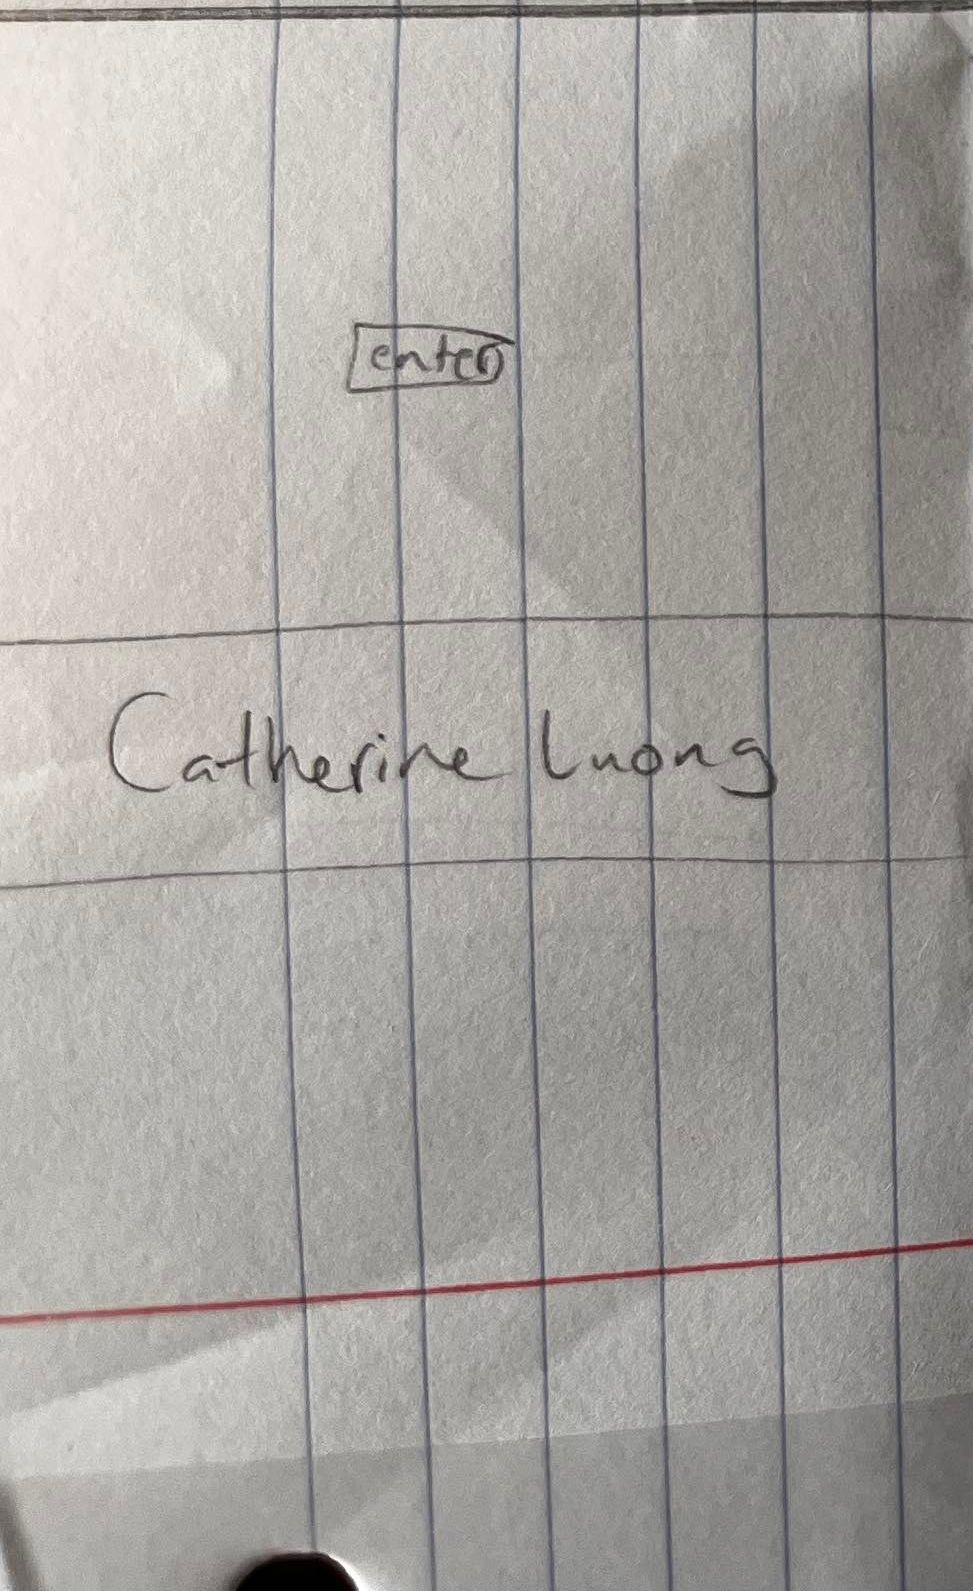 enter
Catherine Luong